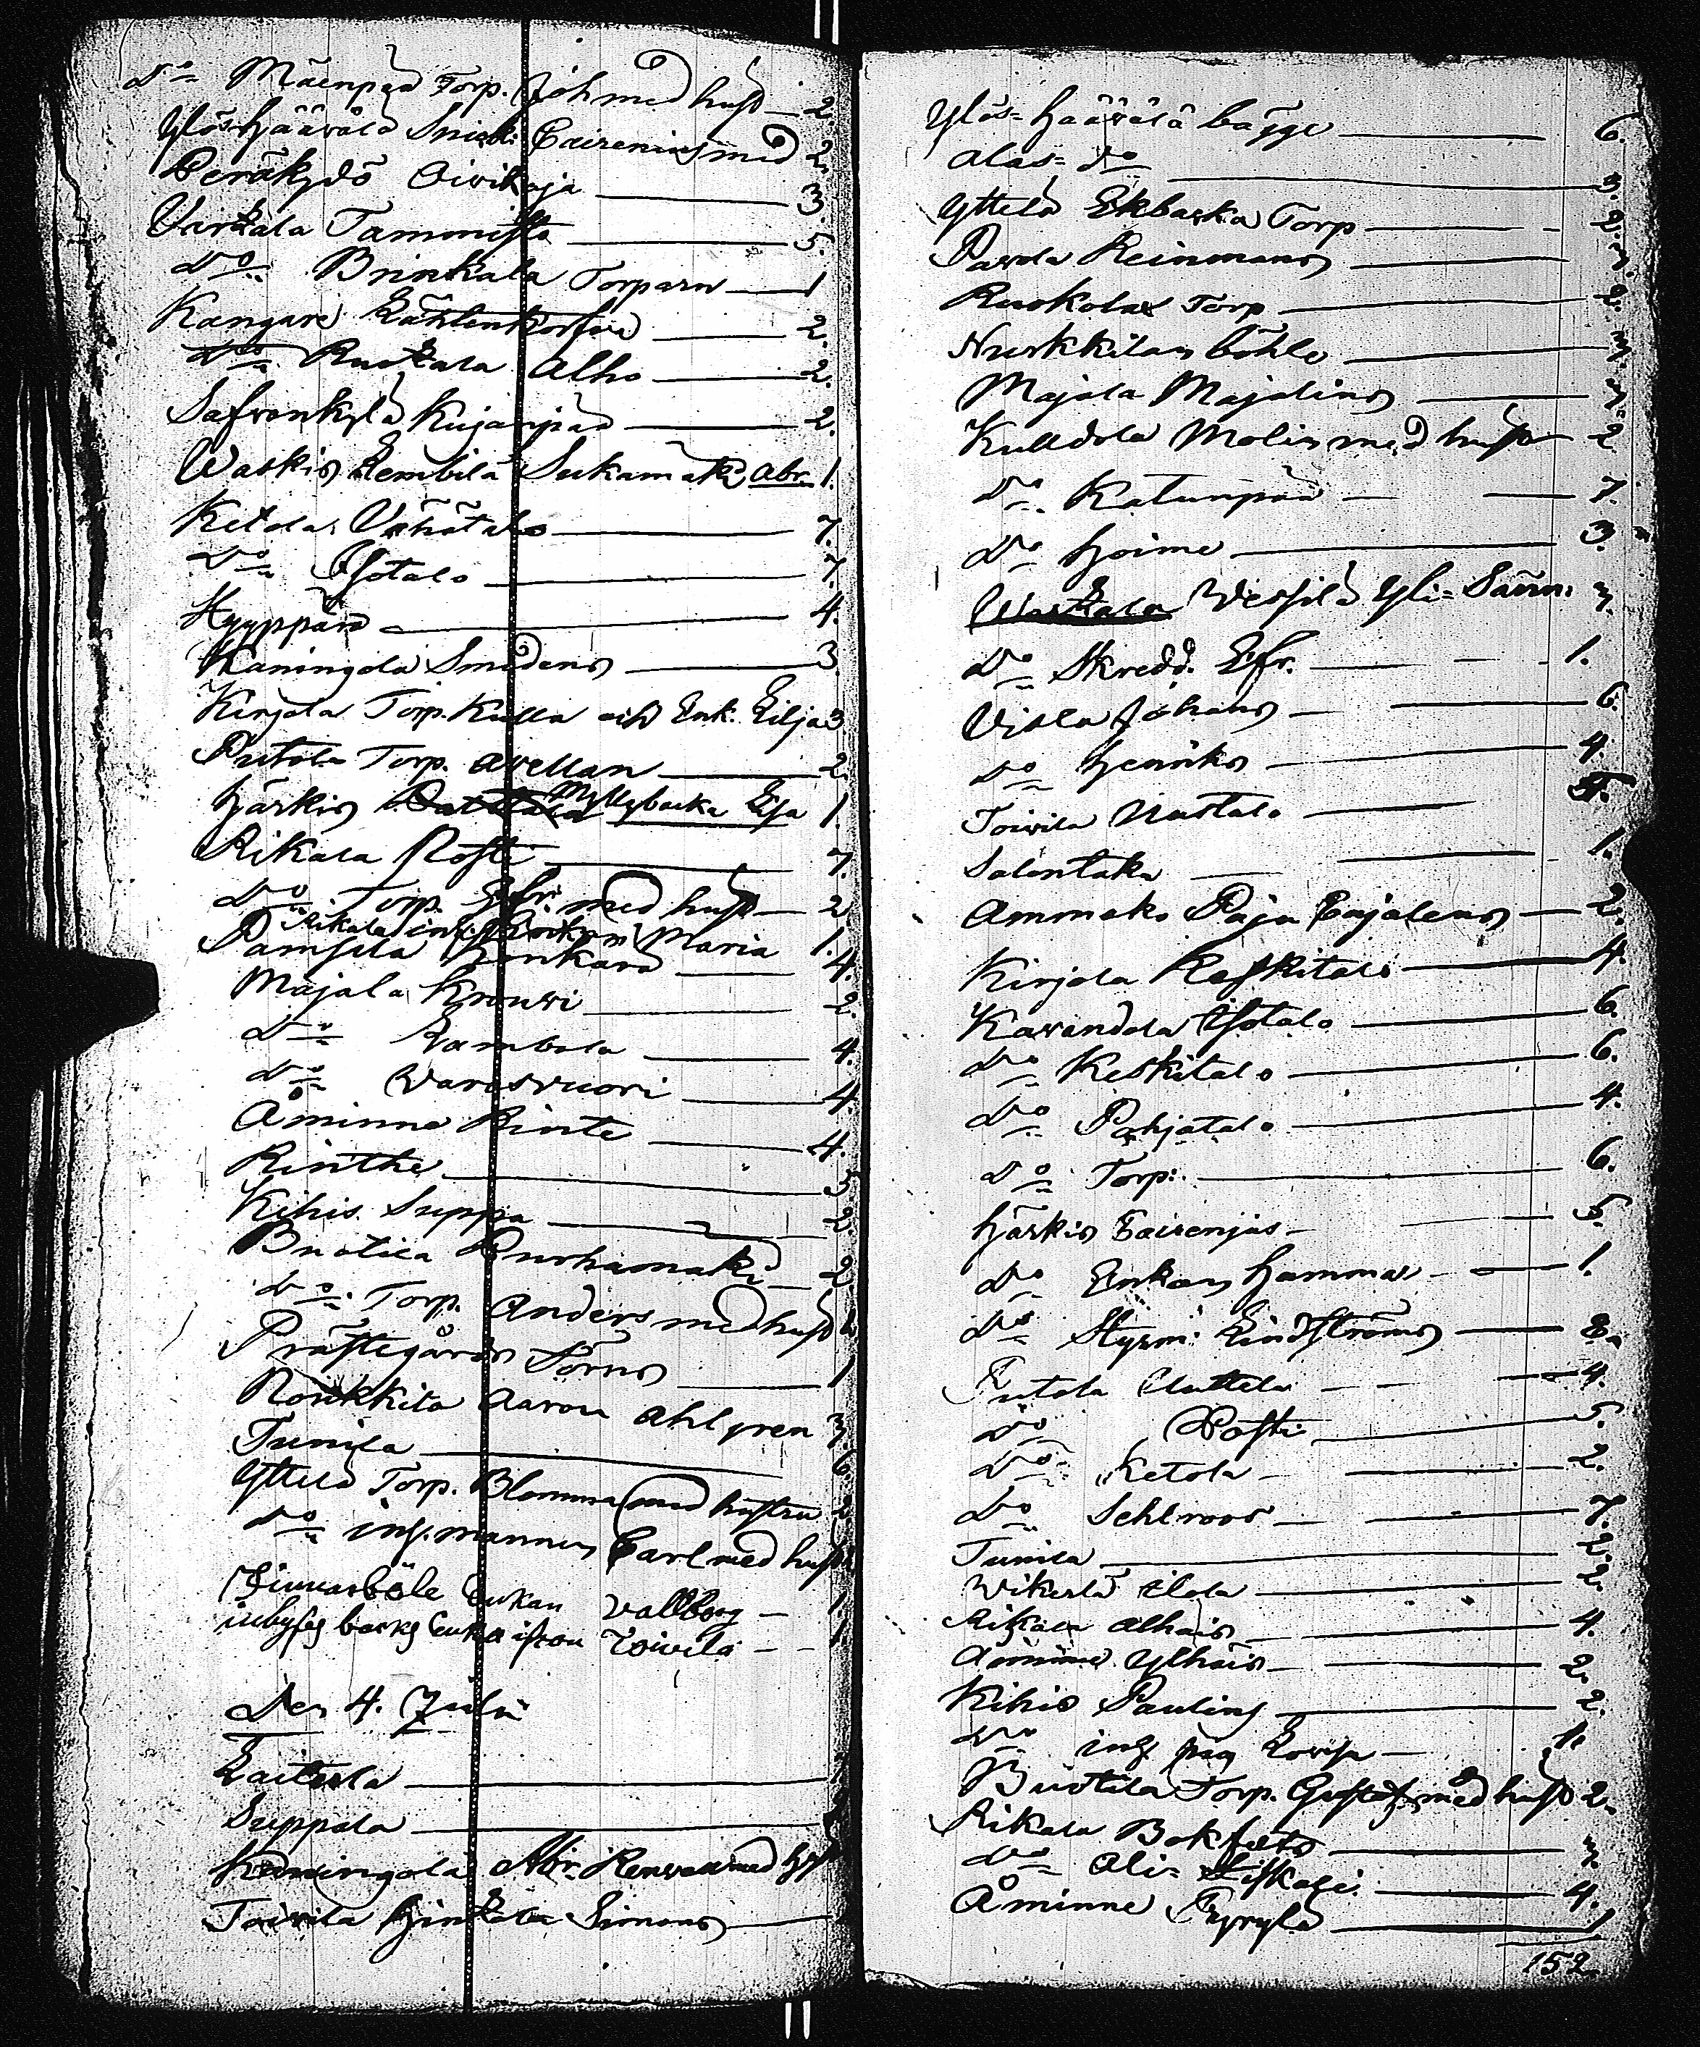 D:o Mäenpää Torp. Joh med hust — 2.
Ylös-Häävälä Snick: Cairenius med 2.
Peräkylö Oivikaja — 3.
Virkala Tammisto — 5.
D:o Brinkala Torparn — 1
Kangare — 2.
D:o Ruokala Alho — 2.
Safvonkylä Kujanpää — 2.
Waskis Lembilä Sukamäki Abr. 1.
Ketola Vähätalo — 7.
D:o Isotalo — 7.
Hyyppärä — 4.
Kaningola Smedens — 3.
Kirjola Torp. Kulla och Enk. Lilja 3
Putola Torp. Avellan — 2
Härkis Myllybacka Lisa 1.
Rikala Rosti — 7.
D:o Torp. Efr. med hust — 2
Rikala inh. Enkan Maria 1.
Pamsila Honkara — 4.
Majala Krouvi — 2.
D:o Lambola — 4.
D:o Varesvuori — 4.
Åminne Rinte — 4.
Rinthe — 5
Kihis Suppa — 2.
Buotila Ruohomäki — 2
D:o Torp. Anders med hust 2
Prästegårds Törns — 1
Nonkkila Aaron Ahlgren 3
Tunila — 6.
Yttelä Torp. Blomma med hustru 2
D:o inh. mannen Carl med hust
Enkan Vallborg — 1.
inhyses Enka ifrån Toivila — 1
Den 4. Julii
Laiterla —
Suppala —
Kaningola Abr. Renvall med h
Toivila Hinkala Simons —
Ylös-Häävälä bägge — 6.
Alas- D:o — 3.
Yttelä Ekbacka Torp — 2.
Pavola Reinmans — 3.
Ruokola Torp — 2.
Nurkkilan böhle — 3.
Majala Majalins — 3.
Kulldola Molin med hust — 2
D:o Katunpää — 7.
D:o Hoime — 3.
Vessilä Yli-Särn: 3.
D:o Skredd. Efr. — 1.
Visla Johans — 6.
D:o Henriks — 4.
Toivila Uustalo — 5.
Salontaka — 1.
Ammako Paja Cajalens — 2.
Kirjola Keskitalo — 4.
Kavandola Isotalo — 6.
D:o Keskitalo — 6.
D:o Pohjatalo — 4.
D:o Torp: — 6.
Härkis Cairenius — 5.
D:o Enkan Hammar — 1.
D:o Styrm: Lindströms — 8.
Putola Uuttela — 4.
D:o Posti — 5.
D:o Ketola — 2.
D:o Sehlroos — 7.
Tunila — 2.
Wikerlä Ilola — 2.
Rikala Alhais — 4.
Åminne Ylhäis — 2.
Kihis Paulins — 2.
D:o inh. pig Lovisa — 1.
Buotila Torp. Gustaf med hust 2.
Rikala Bokfelts — 3.
D:o Ali- — 4.
Åminne Tyrylä — 1
152